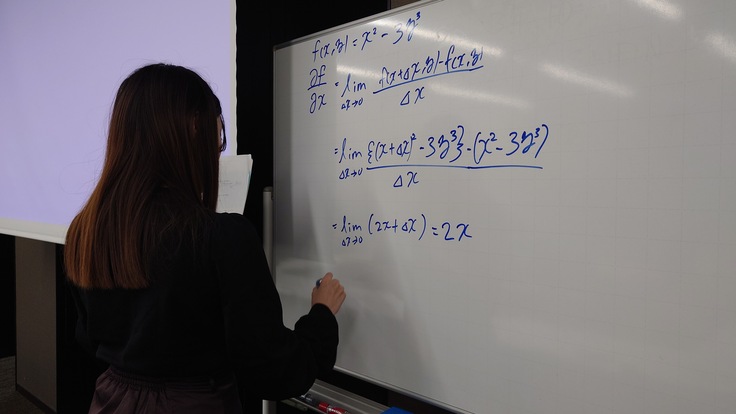 f(x,y)=x²-3y³
∂f/∂x = lim Δx→0 f(x+Δx,y)-f(x,y) / Δx
= lim Δx→0 {(x+Δx)²-3y³}-(x²-3y³) / Δx
= lim Δx→0 (2x+Δx) = 2x